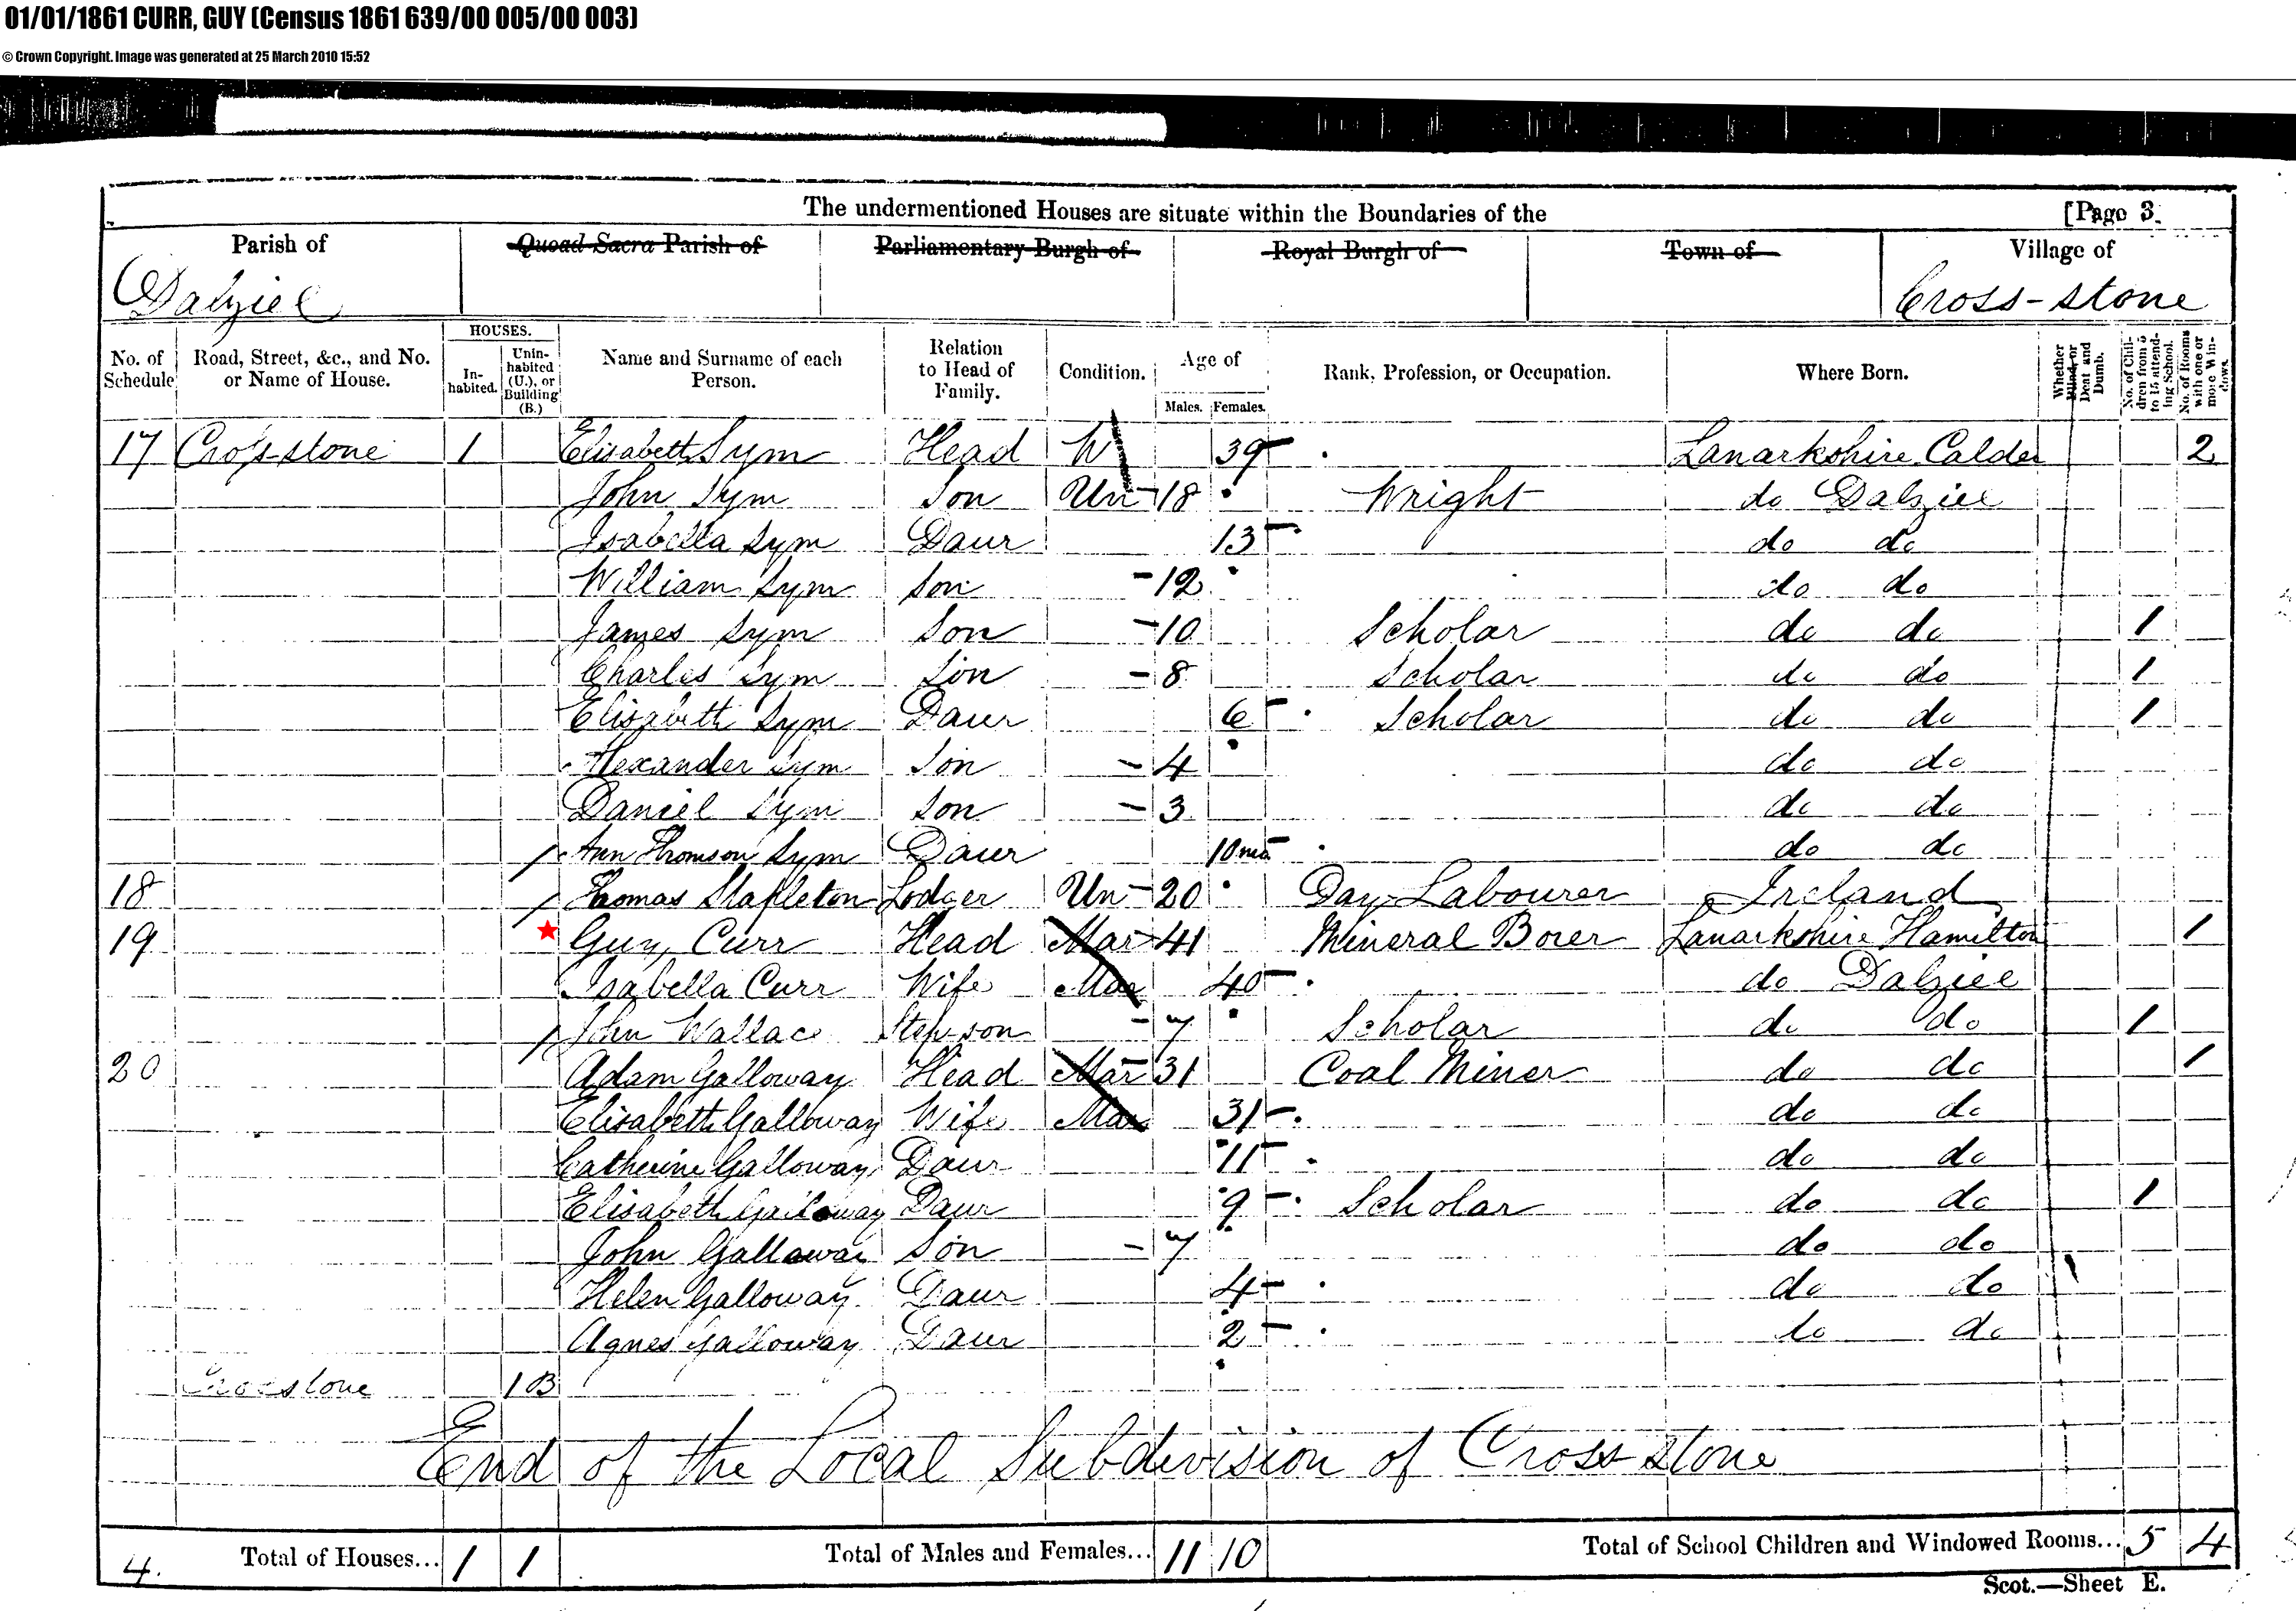 01/01/1861 CURR, GUY (Census 1861 639/00 005/00 003)
© Crown Copyright. Image was generated at 25 March 2010 15:52
The undermentioned Houses are situate within the Boundaries of the [Page 3.
Parish of Quoad Sacra Parish of Parliamentary Burgh of Royal Burgh of Town of Village of
Dalziel Cross-stone
No. of Schedule Road, Street, &c., and No. or Name of House. HOUSES. In-habited. Unin-habited (U.), or Building (B.) Name and Surname of each Person. Relation to Head of Family. Condition. Age of Males. Females. Rank, Profession, or Occupation. Where Born. Whether Blind, or Deaf and Dumb. No. of Chil-dren from 5 to 15 attend-ing School. No. of Rooms with one or more Win-dows.
17 Cross-stone 1 Elisabeth Sym Head W 39 Lanarkshire Calder 2
John Sym Son Un 18 Wright do Dalziel
Isabella Sym Daur 13 do do
William Sym Son 12 do do
James Sym Son 10 Scholar do do 1
Charles Sym Son 8 Scholar do do 1
Elisabeth Sym Daur 6 Scholar do do 1
Alexander Sym Son 4 do do
Daniel Sym Son 3 do do
Ann Thomson Sym Daur 10 mo do do
18 Thomas Stapleton Lodger Un 20 Day Labourer Ireland
19 Guy Curr Head Mar 41 Mineral Borer Lanarkshire Hamilton 1
Isabella Curr Wife Mar 40 do Dalziel
John Wallace Stepson 7 Scholar do do 1
20 Adam Galloway Head Mar 31 Coal Miner do do 1
Elisabeth Galloway Wife Mar 31 do do
Catherine Galloway Daur 11 do do
Elisabeth Galloway Daur 9 Scholar do do 1
John Galloway Son 7 do do
Helen Galloway Daur 4 do do
Agnes Galloway Daur 2 do do
Crosstone 1 B
End of the Local Subdivision of Cross-stone
4. Total of Houses... 1 1 Total of Males and Females... 11 10 Total of School Children and Windowed Rooms... 5 4
Scot.—Sheet E.